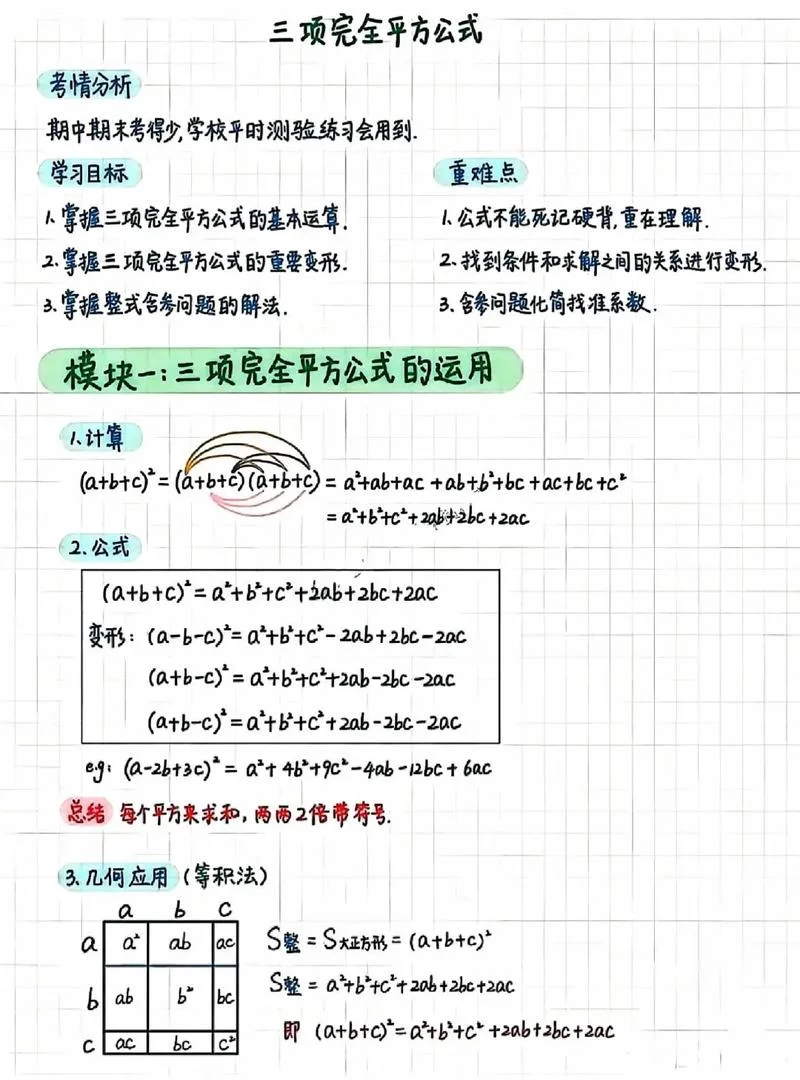 三项完全平方公式
考情分析
期中期末考得少,学校平时测验练习会用到.
学习目标
1.掌握三项完全平方公式的基本运算.
2.掌握三项完全平方公式的重要变形.
3.掌握整式含参问题的解法.
重难点
1.公式不能死记硬背,重在理解.
2.找到条件和求解之间的关系进行变形.
3.含参问题化简找准系数.
模块一:三项完全平方公式的运用
1.计算
(a+b+c)²=(a+b+c)(a+b+c)=a²+ab+ac+ab+b²+bc+ac+bc+c²
=a²+b²+c²+2ab+2bc+2ac
2.公式
(a+b+c)²=a²+b²+c²+2ab+2bc+2ac
变形:(a-b-c)²=a²+b²+c²-2ab+2bc-2ac
(a+b-c)²=a²+b²+c²+2ab-2bc-2ac
(a+b-c)²=a²+b²+c²+2ab-2bc-2ac
e.g:(a-2b+3c)²=a²+4b²+9c²-4ab-12bc+6ac
总结 每个平方来求和,两两2倍带符号.
3.几何应用(等积法)
a b c
a a² ab ac
b ab b² bc
c ac bc c²
S整=S大正方形=(a+b+c)²
S整=a²+b²+c²+2ab+2bc+2ac
即(a+b+c)²=a²+b²+c²+2ab+2bc+2ac